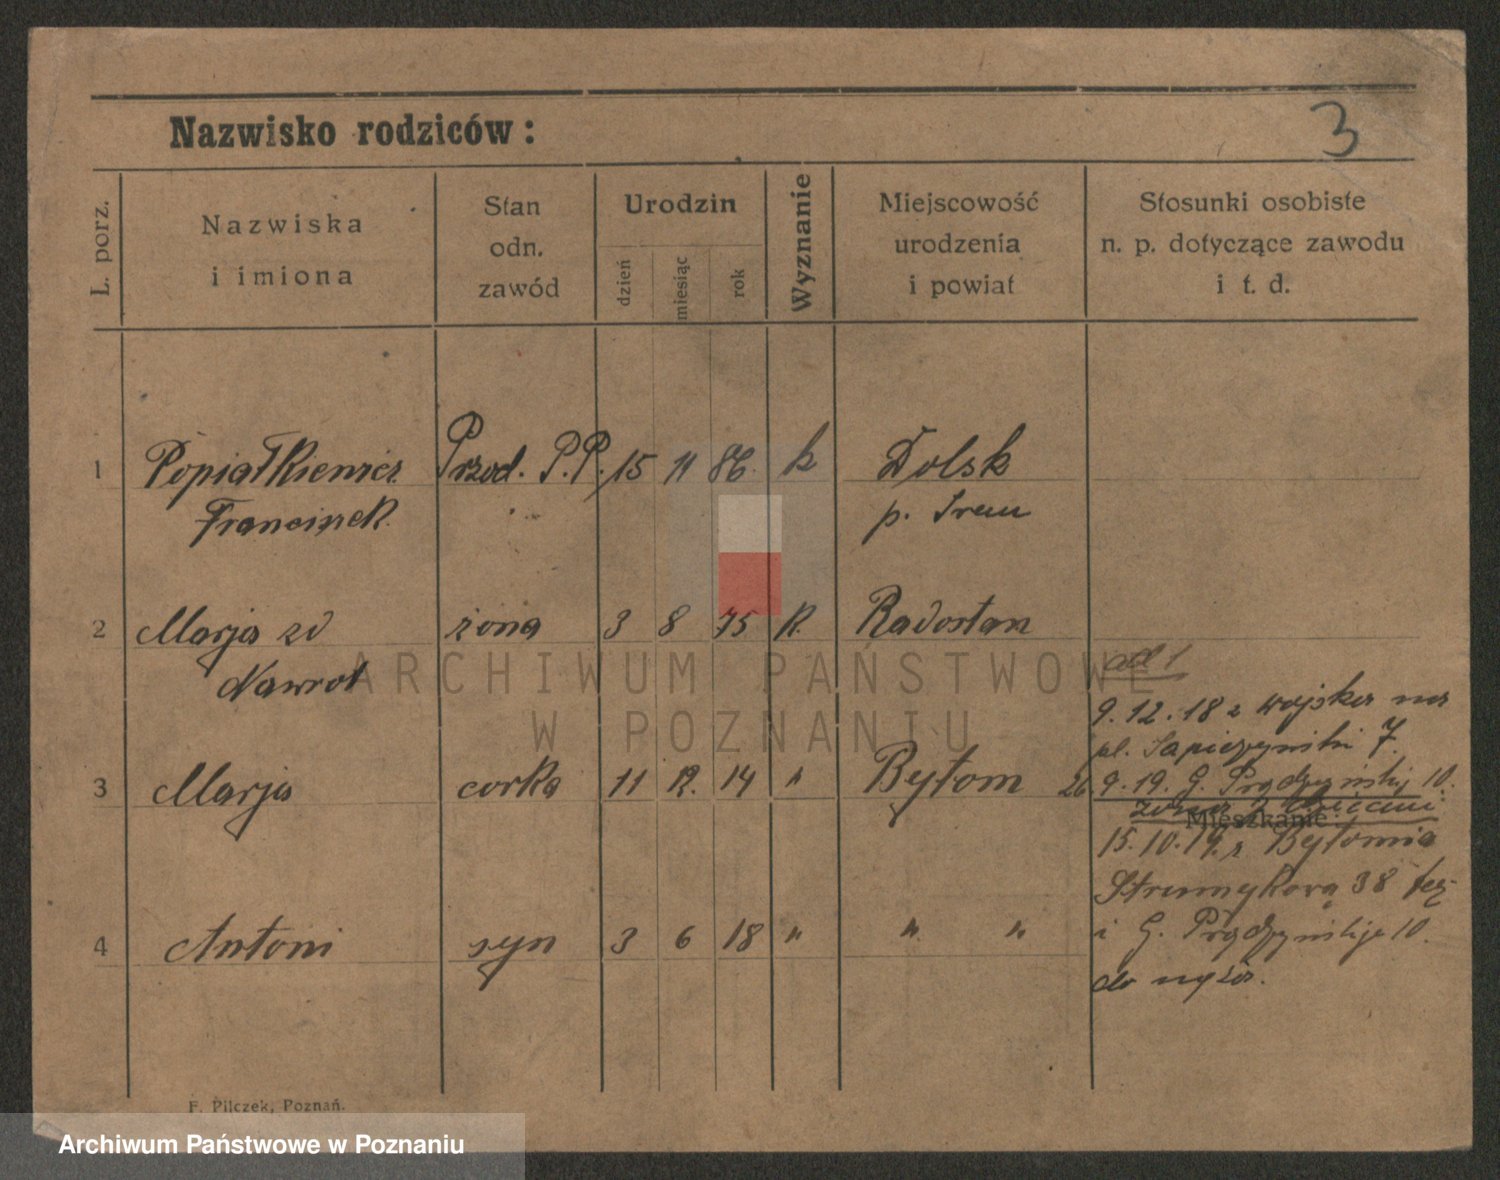 3
Nazwisko rodziców:
L. porz.
Nazwiska
i imiona
Stan
odn.
zawód
Urodzin
dzień
miesiąc
rok
Wyznanie
Miejscowość
urodzenia
i powiat
Stosunki osobiste
n. p. dotyczące zawodu
i t. d.
1 Popiałkiewicz Przod. P.P. 15 11 86. k Dolsk
Franciszek p. Śrem
2 Marja zd żona 3 8 75 K. Radostam
Nawrot
ad 1
9.12.18 z wojska na
pl. Sapieżyński 7.
3 Marja corka 11 12. 14 " Bytom 26.9.19. G. Prądzyńskij 10.
żona z dziećmi
Mieszkanie:
15.10.19. z Bytomia
38
4 Antoni syn 3 6 18 " " " i G. Prądzyńskije 10.
do wyżej.
F. Pilczek, Poznań.
ARCHIWUM PAŃSTWOWE
W POZNANIU
Archiwum Państwowe w Poznaniu